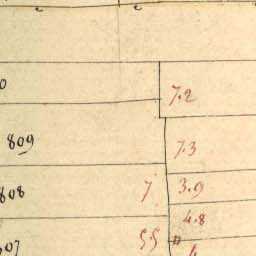 7.2
809
7.3
808
7 3.9
4.8
5.5
4